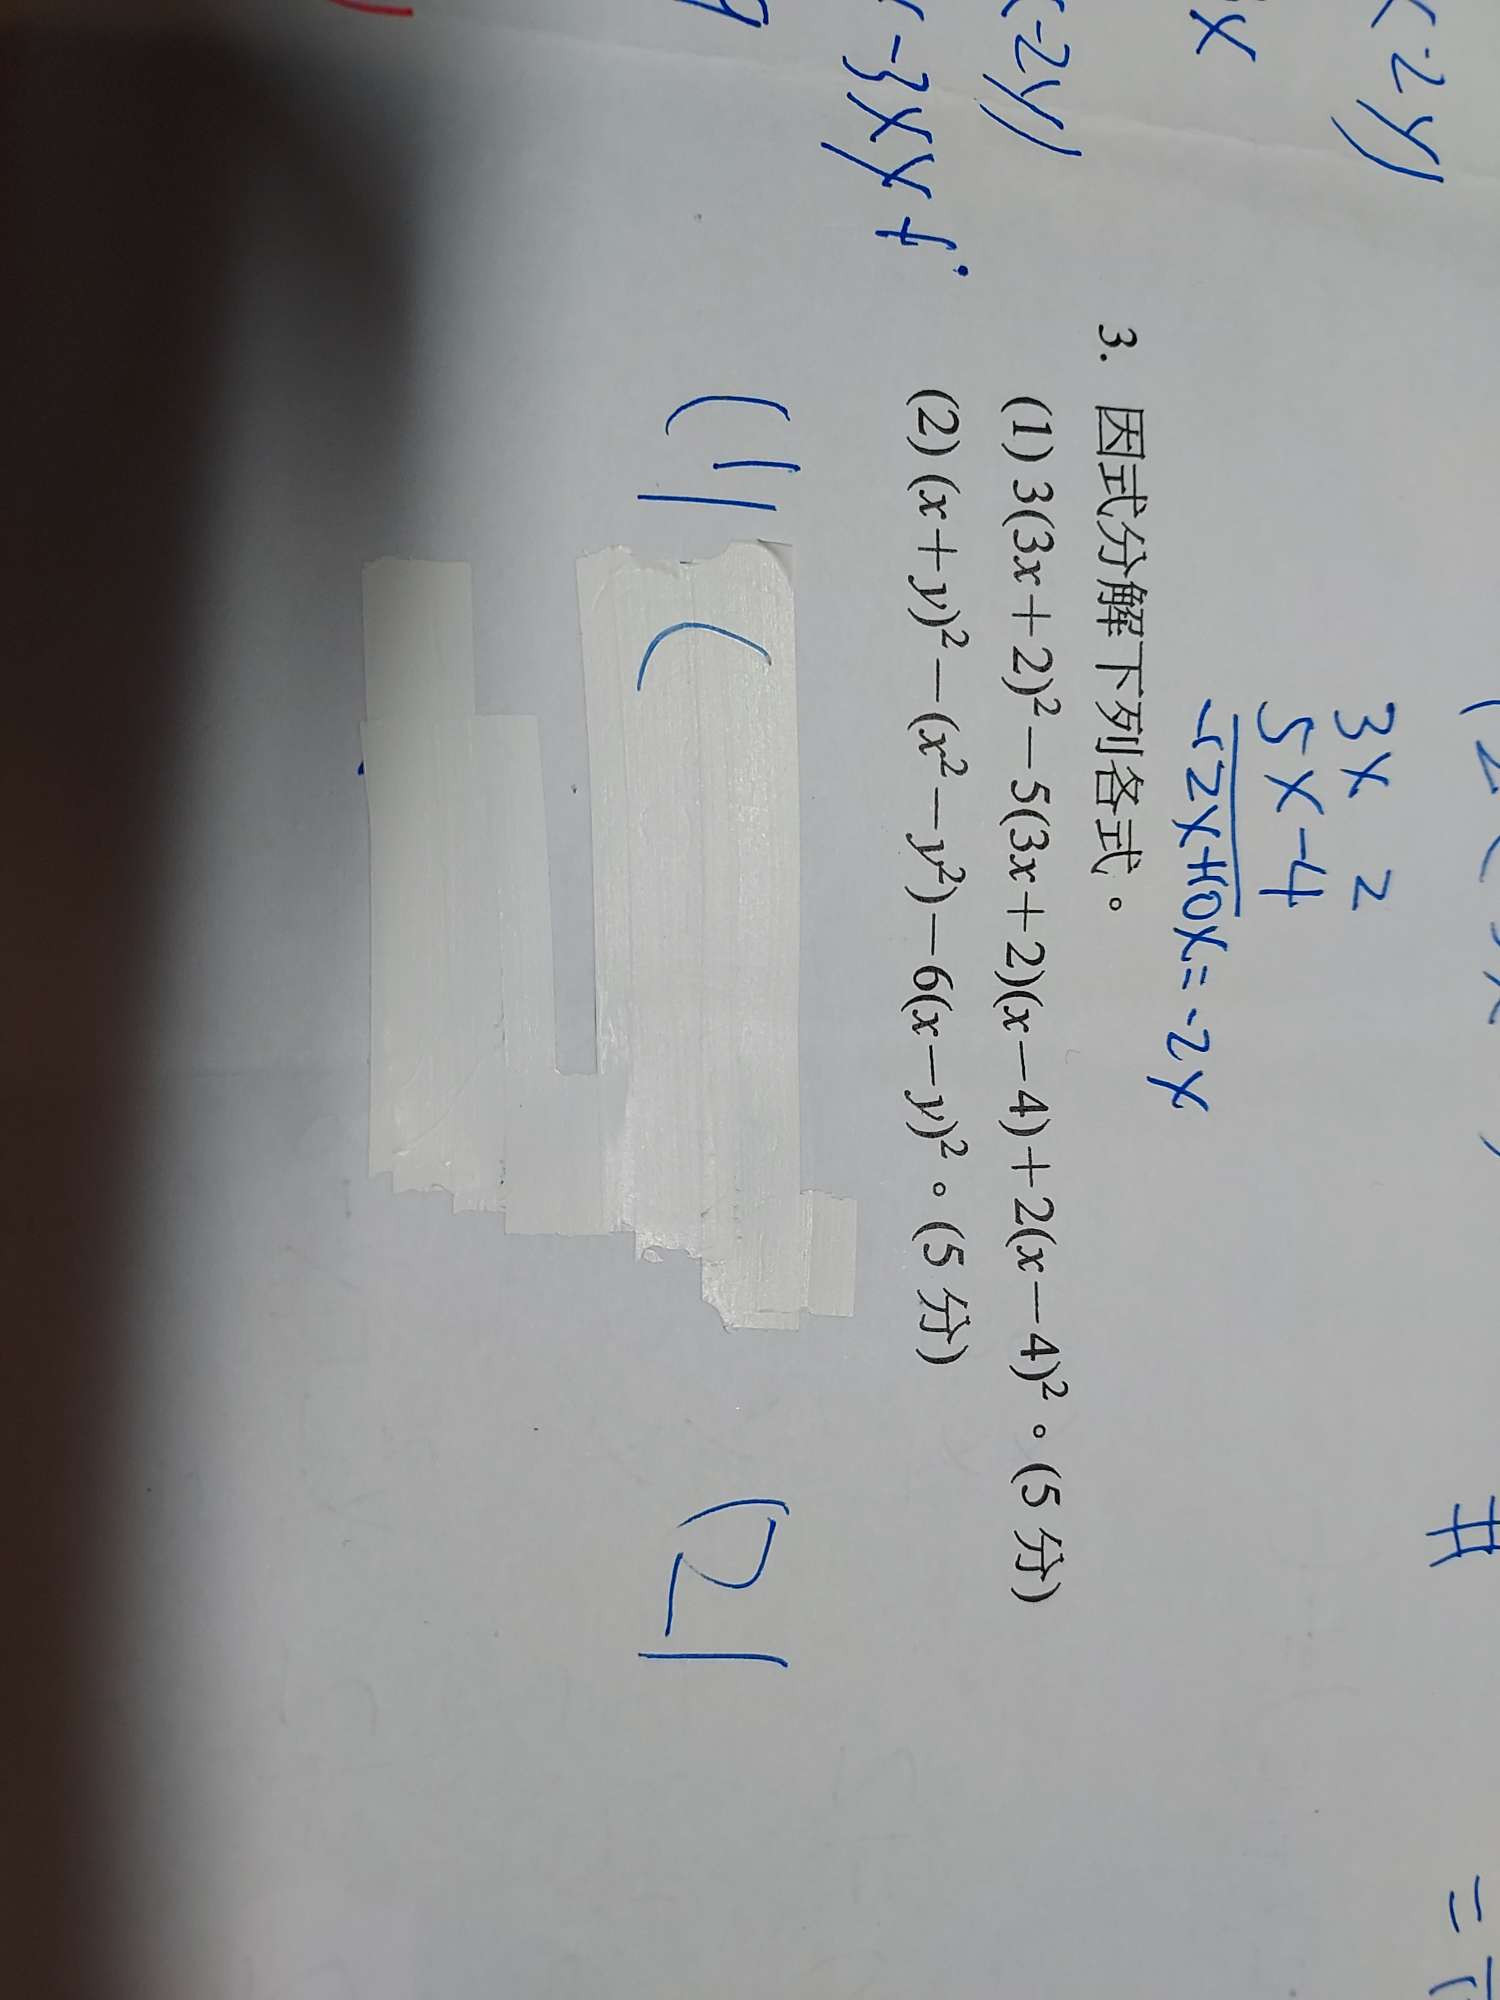 (2
#
=
x-2y)
3x 2
5x-4
x
-12x+10x=-2x
3. 因式分解下列各式。
x-2y)
(1) 3(3x+2)²-5(3x+2)(x-4)+2(x-4)²。(5 分)
-3xy+
(2) (x+y)²-(x²-y²)-6(x-y)²。(5 分)
(1) (
(2)